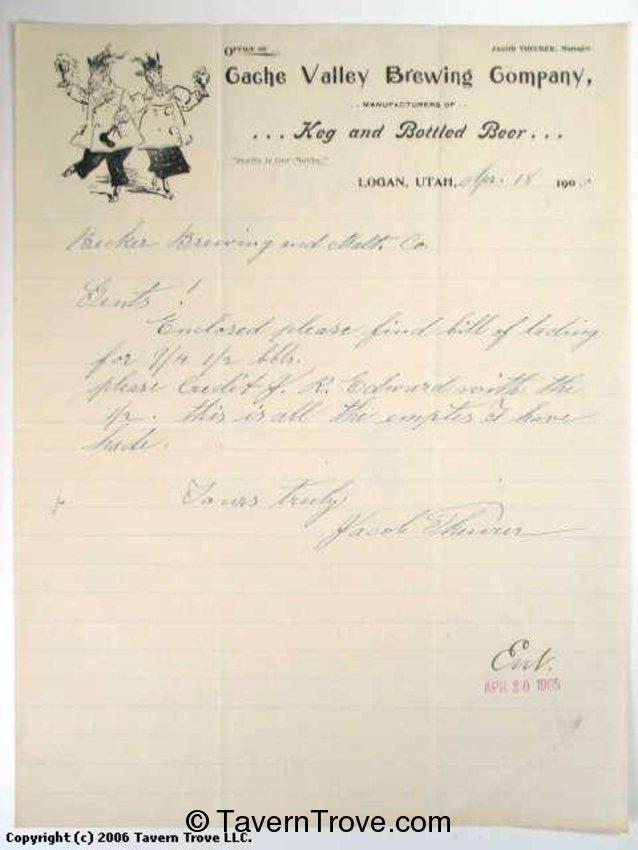 OFFICE OF
JACOB THEURER, Manager.
Cache Valley Brewing Company,
..MANUFACTURERS OF..
...Keg and Bottled Beer...
"Purity is Our Motto."
LOGAN, UTAH, Apr. 18 1905
Becker Brewing and Malt. Co.
Gents!
Enclosed please find bill of lading
for 9/4 1/2 bbls.
please Credit J. R. Edward with the
1/2. this is all the empties I have
hade.
Yours truly
Jacob Theurer
Ent.
APR 20 1905
© TavernTrove.com
Copyright (c) 2006 Tavern Trove LLC.